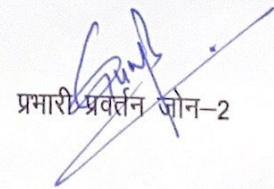 प्रभारी प्रवर्तन जोन–2